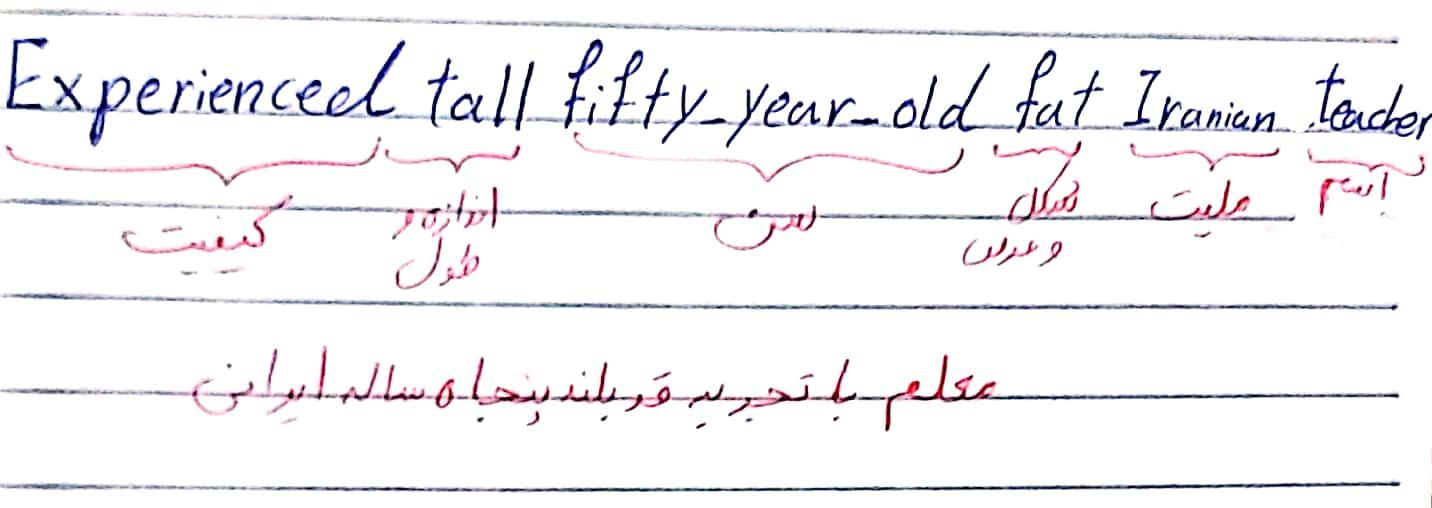 Experienced tall fifty-year-old fat Iranian teacher
کیفیت اندازه و سن شکل ملیت اسم
طول و عرض
معلم با تجربه قد بلند پنجاه ساله ایرانی